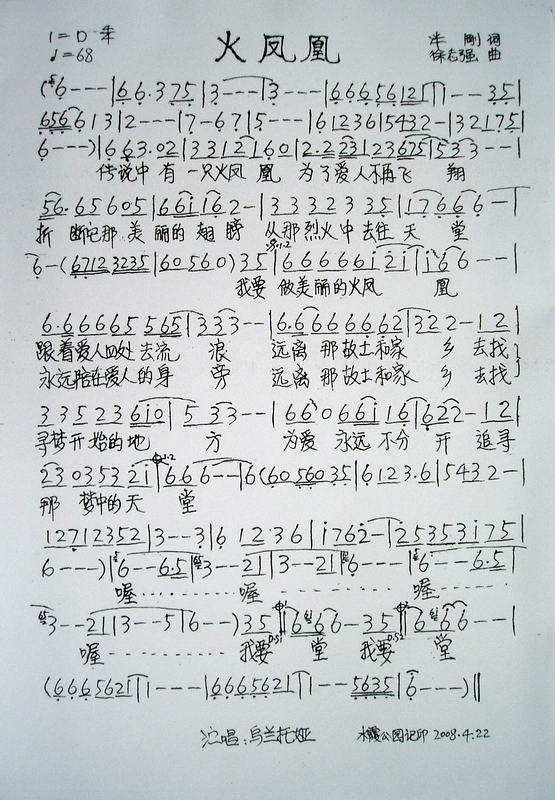 1=D 4/4 火凤凰 半刚 词
♩=68 徐志强 曲
(6---|66·375|3---|3---|6665612|1---35|
6566 13|2---|7-67|5---|61236|5432-|32175|
6---)|663·02|331216 0|2·22312367 5|533--|
传说中 有 一只火凤 凰 为了爱人不再飞 翔
56·65605|661162-|33323 35|176 66-|
折 断它那 美 丽的 翅 膀 从那烈火中 去往 天 堂
6-(67123235|60560)35|66666i2i|i66--|
我要 做美丽的火凤 凰
6·66665565|333--|6·66666662|322-12|
跟着爱人四处 去流 浪 远离 那故土和家 乡 去找
永远陪在爱人的身 旁 远离 那故土和家 乡 去找
3352361 0|533--|66066i16|622-12|
寻梦开 始的 地 方 为爱 永远 不分 开 追寻
2303532i|666--|6(6056035|6123·6|5432-|
那 梦中的天 堂
12712352|3--3|6 12·36|i762-|25353i75|
6---)|6--6·5|3--21|3--21|6---|6--6·5|
喔········ 喔········ 喔······
3--21|3--5|6--)35|6 66-35|6 66--|
喔·········· 我要 堂 我要 堂
(6665621|1---|6665621|1--5635|6---)‖
演唱:乌兰托娅 水霞公园记印 2008.4.22